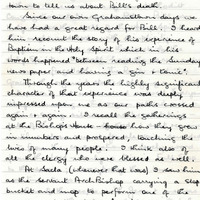 town to tell us about Bill's death.
Since our own Grahamstown days we
have had a great regard for Bill. I heard
him recount the story of his experience of
Baptism in the Holy Spirit which in his
words happened "between reading the Sunday
news paper and having a gin & tonic".
Through the years the highly significant
character of their experience was deeply
impressed upon me as our paths crossed
again & again. I recall the gatherings
at the Bishops House how they grew
in numbers and prospered, touching the
lives of many people. I think also of
all the clergy who were blessed as well.
At (whatever that was) I saw him
as the servant Archbishop carrying a slop
bucket and mop to perform one of the